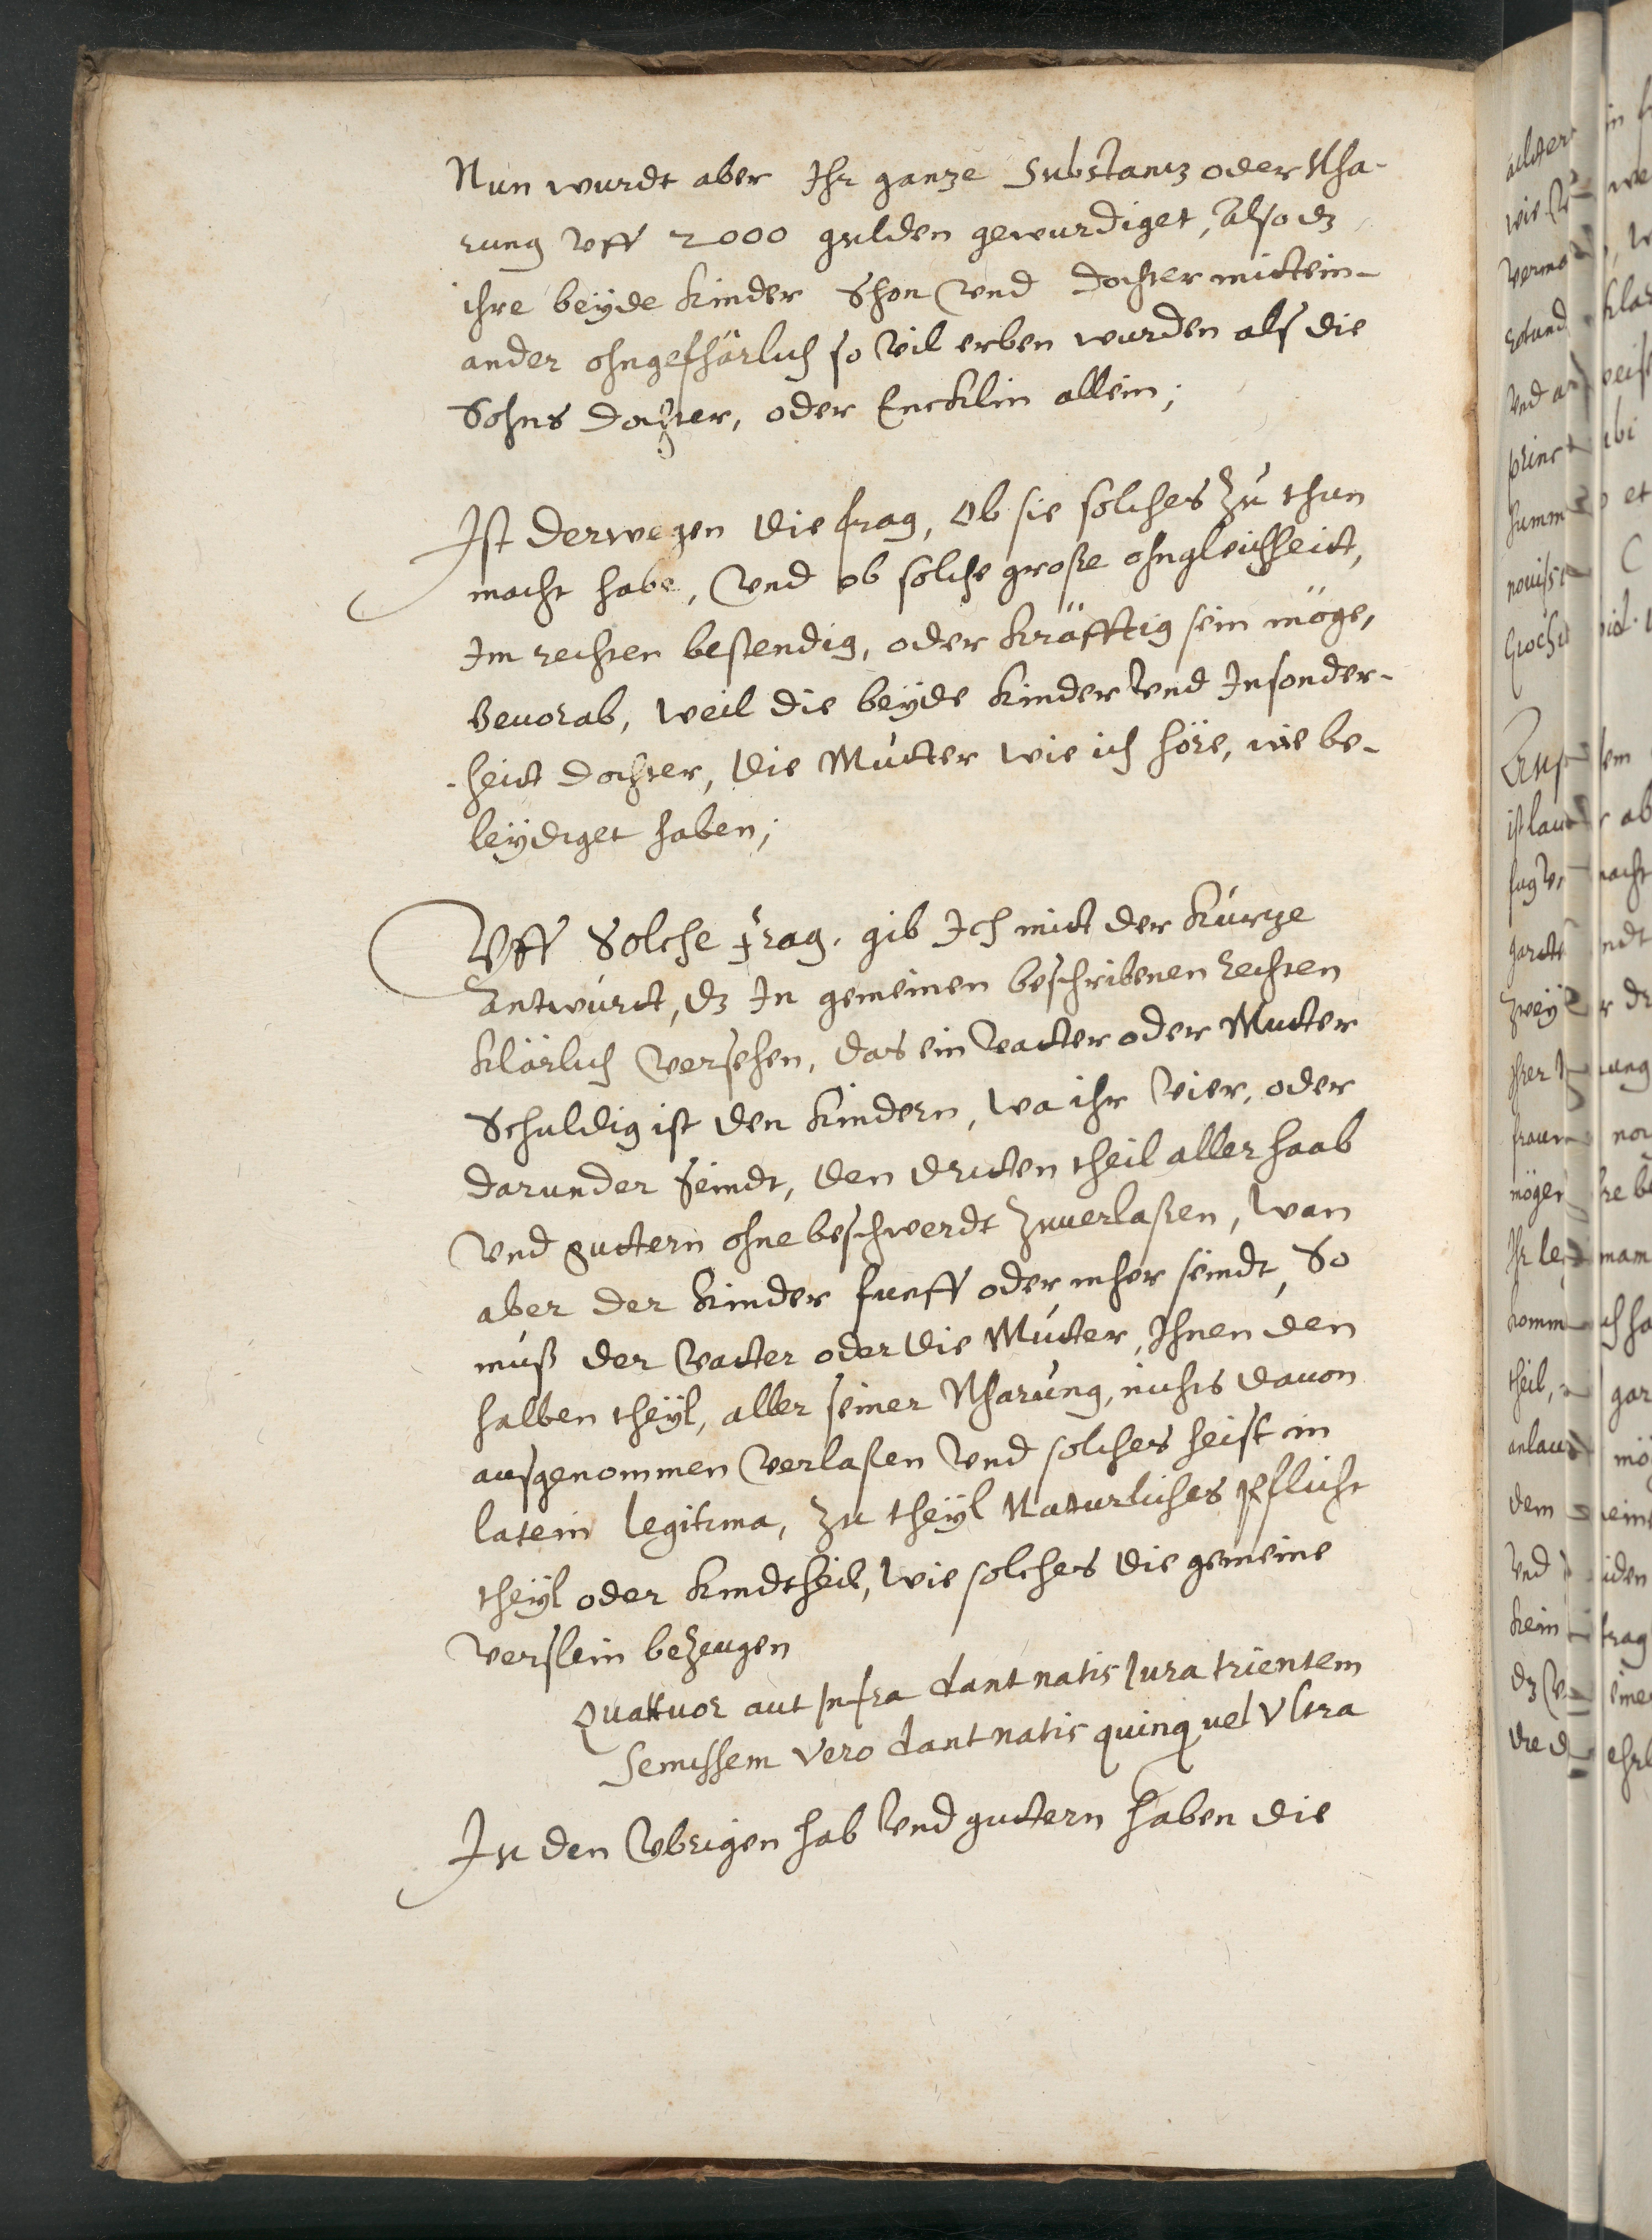 Nun wurdt aber Ihr ganze Substantz oder Nha-
rung vff 2000 gulden gewurdiget, Also dz
ihre beÿde Kinder Shon vnd Dochter mittein-
ander ohngefhärlich so vil erben wurden als die
Sohns Dochter, oder Encklin allein;
Ist derwegen die frag, Ob sie solches zu thun
macht habe, vnd ob solche große ohngleichheit,
Im rechten bestendig, oder kräfftig sein möge,
Beuorab, weil die beÿde Kinder vnd Insonder-
-heit Dochter, die Mutter wie ich höre, nie be-
leÿdiget haben;
Vff Solche frag, gib Ich mit der kurtze
Antwurt, dz In gemeinen beschribenen rechten
klärlich versehen, das ein Vatter oder Mutter
Schuldig ist den Kindern, wa ihr vier, oder
darunder seindt, den dritten theil aller haab
vnd guttern ohne beschwerdt zuuerlaßen, wan
aber der Kinder funff oder mher seindt, So
muß der Vatter oder die Mutter, Ihnen den
halben theÿl, aller seiner Nharung, nichts dauon
ausgenommen verlaßen vnd solches heist in
latein legitima, zu theÿl Naturliches Pflicht
theÿl oder Kindtheil, wie solches die gemeine
verslein bezeugen
Quattuor aut Infra dant natis Iura trientem
Semissem vero dant natis quinq vel vltra
In den vbrigen hab vnd guttern haben die